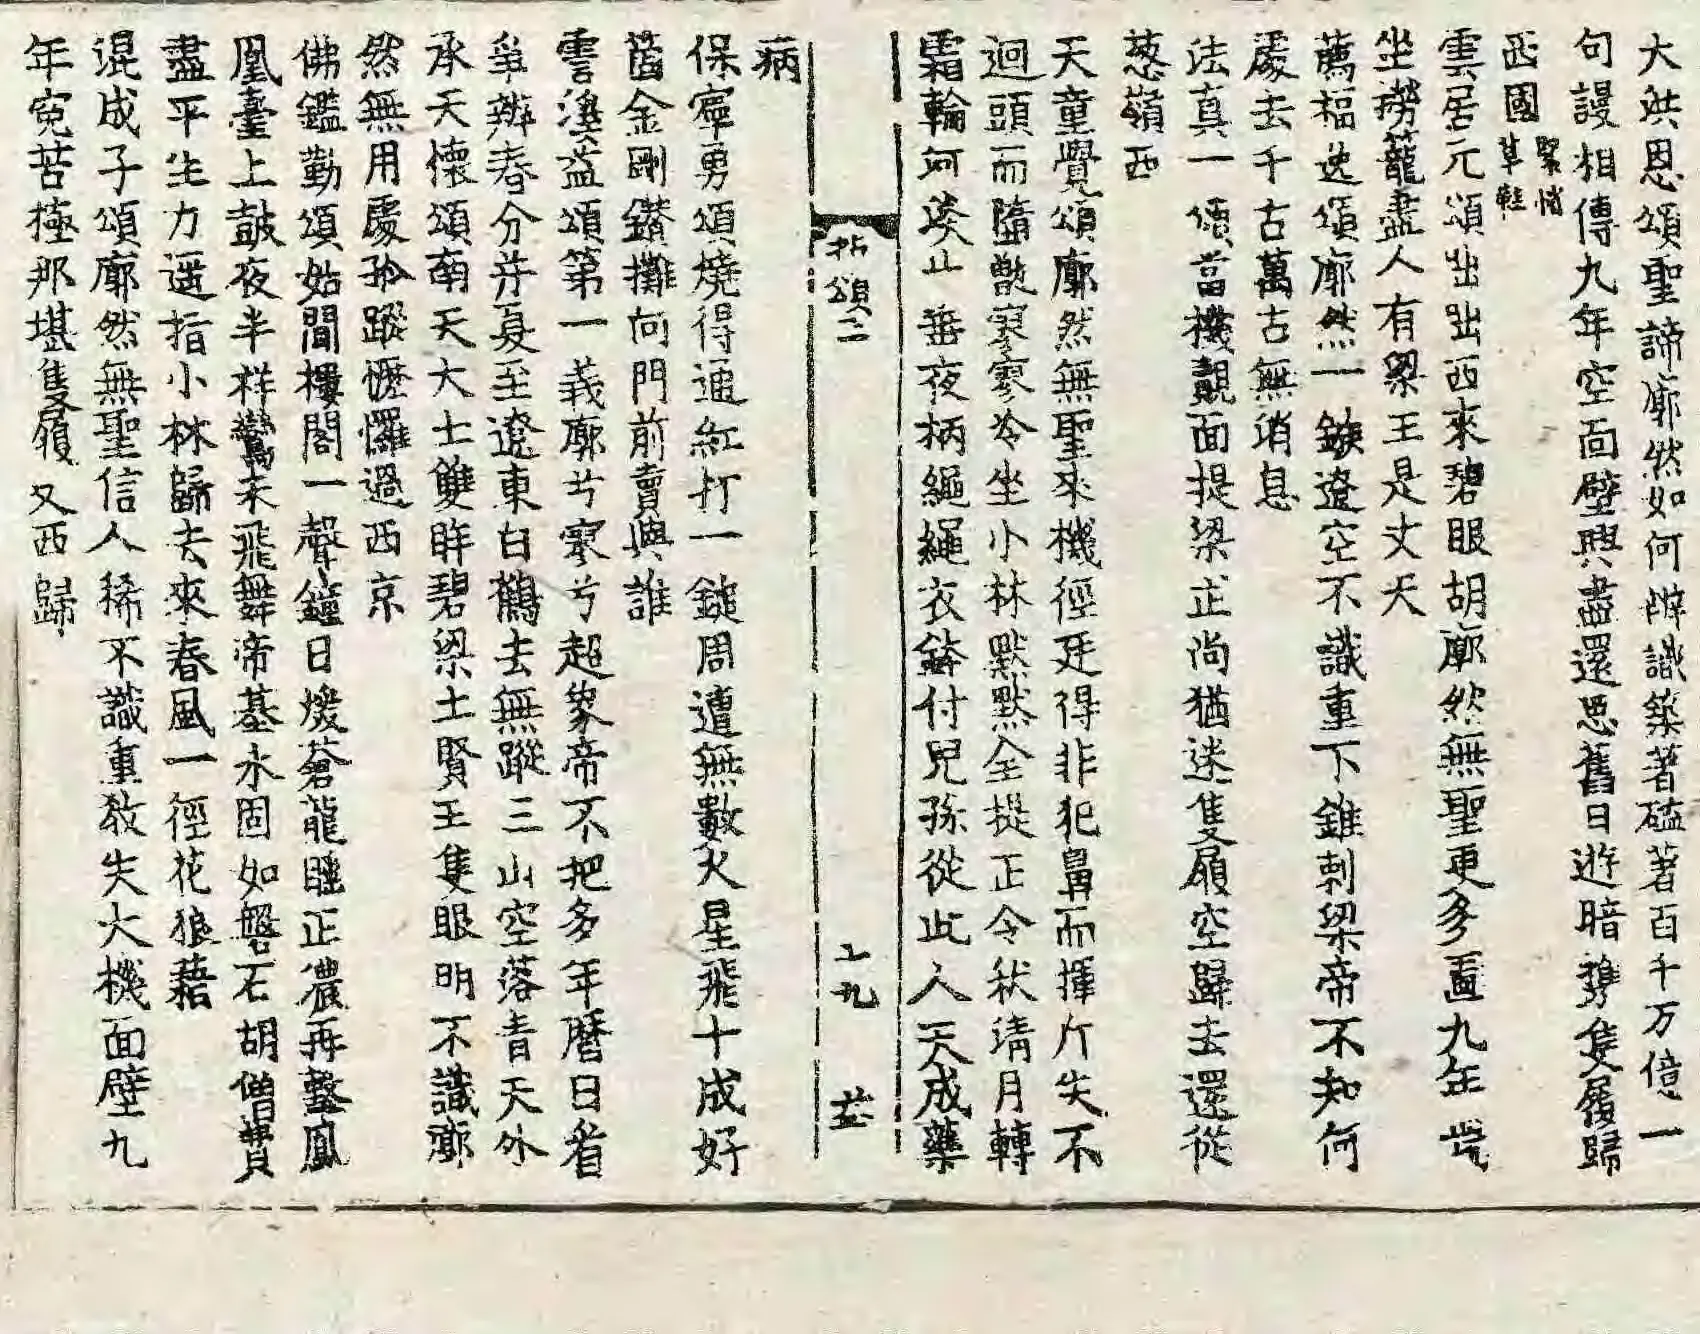 大洪恩頌聖諦廓然如何辨識築著磕著百千万億一
句謾相傳九年空面壁興盡還思舊日遊暗携隻履歸
西國緊悄草鞋
雲居元頌出出西來碧眼胡廓然無聖更多圖九年
坐撈籠盡人有梁王是丈夫
薦福逸頌廓然一鏃遼空不識重下錐刺梁帝不知何
處去千古萬古無消息
法真一頌當機覿面提梁王尚猶迷隻履空歸去還從
葱嶺西
天童覺頌廓然無聖來機徑廷得非犯鼻而揮斤失不
迴頭而墮甑寥寥冷坐小林默默全提正令秋清月轉
霜輪河淡斗垂夜柄繩繩衣鉢付兒孫從此人天成藥
拈頌二
病
保寧勇頌燒得通紅打一鎚周遭無數火星飛十成好
箇金剛鑽攤向門前賣與誰
雲溪益頌第一義廓兮寥兮超象帝不把多年曆日看
爭辨春分并夏至遼東白鶴去無蹤三山空落青天外
承天懷頌南天大士雙眸碧梁土賢王隻眼明不識廓
然無用處孤蹤懡㦬過西京
佛鑑勤頌始聞樓閣一聲鐘日煖蒼龍睡正濃再擊鳳
凰臺上鼓夜半祥鸞未飛舞帝基永固如磐石胡僧費
盡平生力遥指小林歸去來春風一徑花狼藉
混成子頌廓然無聖信人稀不識重教失大機面壁九
年寃苦極那堪隻履又西歸